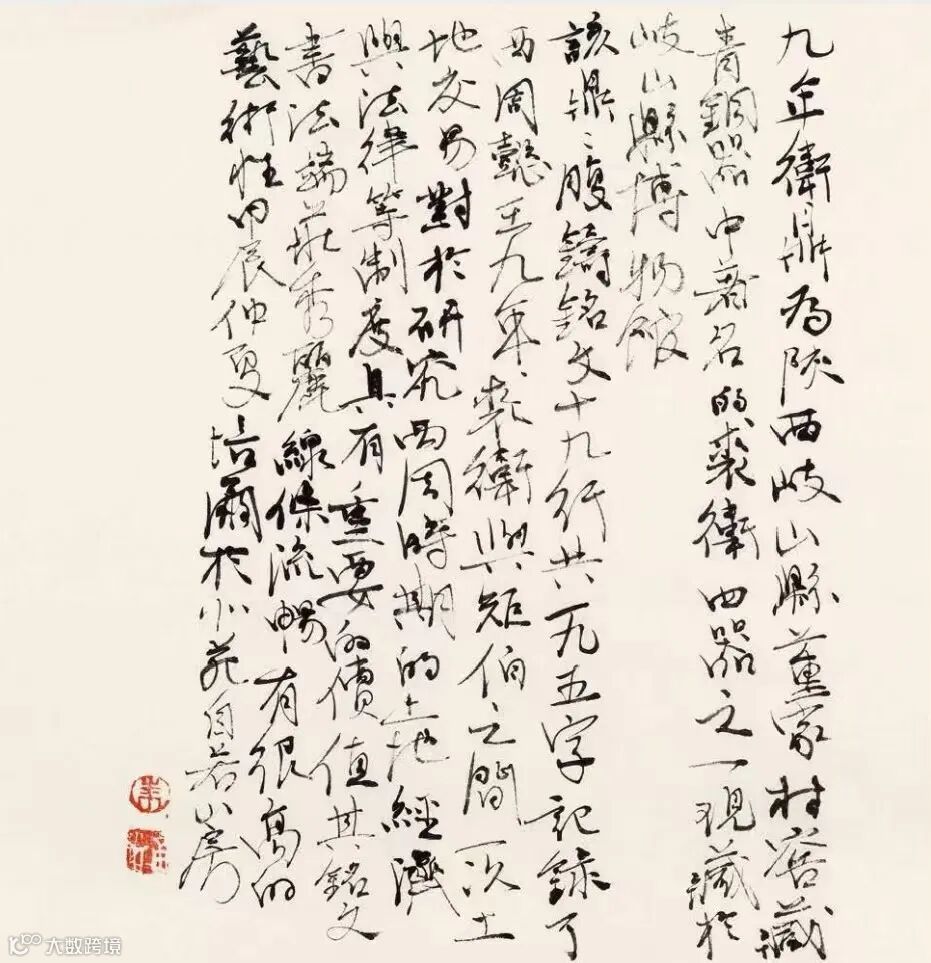 九年衛鼎為陝西岐山縣董家村窖藏
青銅器中著名的裘衛四器之一現藏於
岐山縣博物館
該鼎之腹鑄銘文十九行共一九五字記錄了
西周懿王九年裘衛與矩伯之間一次土
地交易對於研究西周時期的土地經濟
與法律等制度具有重要的價值其銘文
書法端莊秀麗線條流暢有很高的
藝術性甲辰仲夏培爾於小苑自若山房
大数跨境